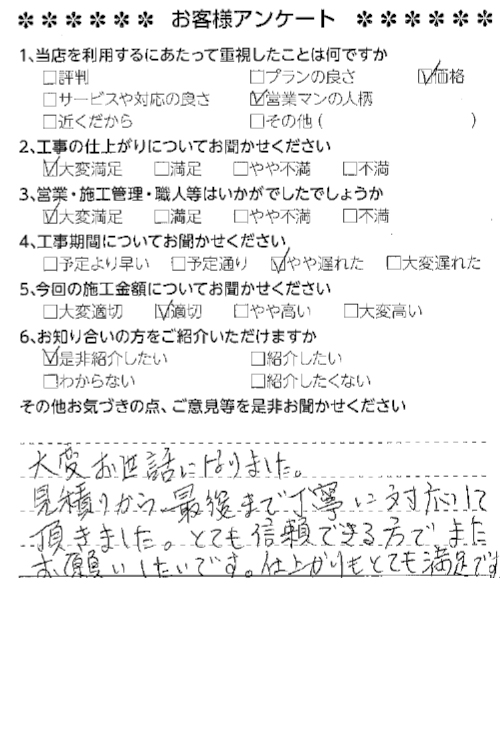 ****** お客様アンケート ******
1、当店を利用するにあたって重視したことは何ですか
□評判 □プランの良さ ☑価格
□サービスや対応の良さ ☑営業マンの人柄
□近くだから □その他( )
2、工事の仕上がりについてお聞かせください
☑大変満足 □満足 □やや不満 □不満
3、営業・施工管理・職人等はいかがでしたでしょうか
☑大変満足 □満足 □やや不満 □不満
4、工事期間についてお聞かせください
□予定より早い □予定通り ☑やや遅れた □大変遅れた
5、今回の施工金額についてお聞かせください
□大変適切 ☑適切 □やや高い □大変高い
6、お知り合いの方をご紹介いただけますか
☑是非紹介したい □紹介したい
□わからない □紹介したくない
その他お気づきの点、ご意見等を是非お聞かせください
大変お世話になりました。
見積りから最後まで丁寧に対応して
頂きました。とても信頼できる方でまた
お願いしたいです。仕上がりもとても満足です